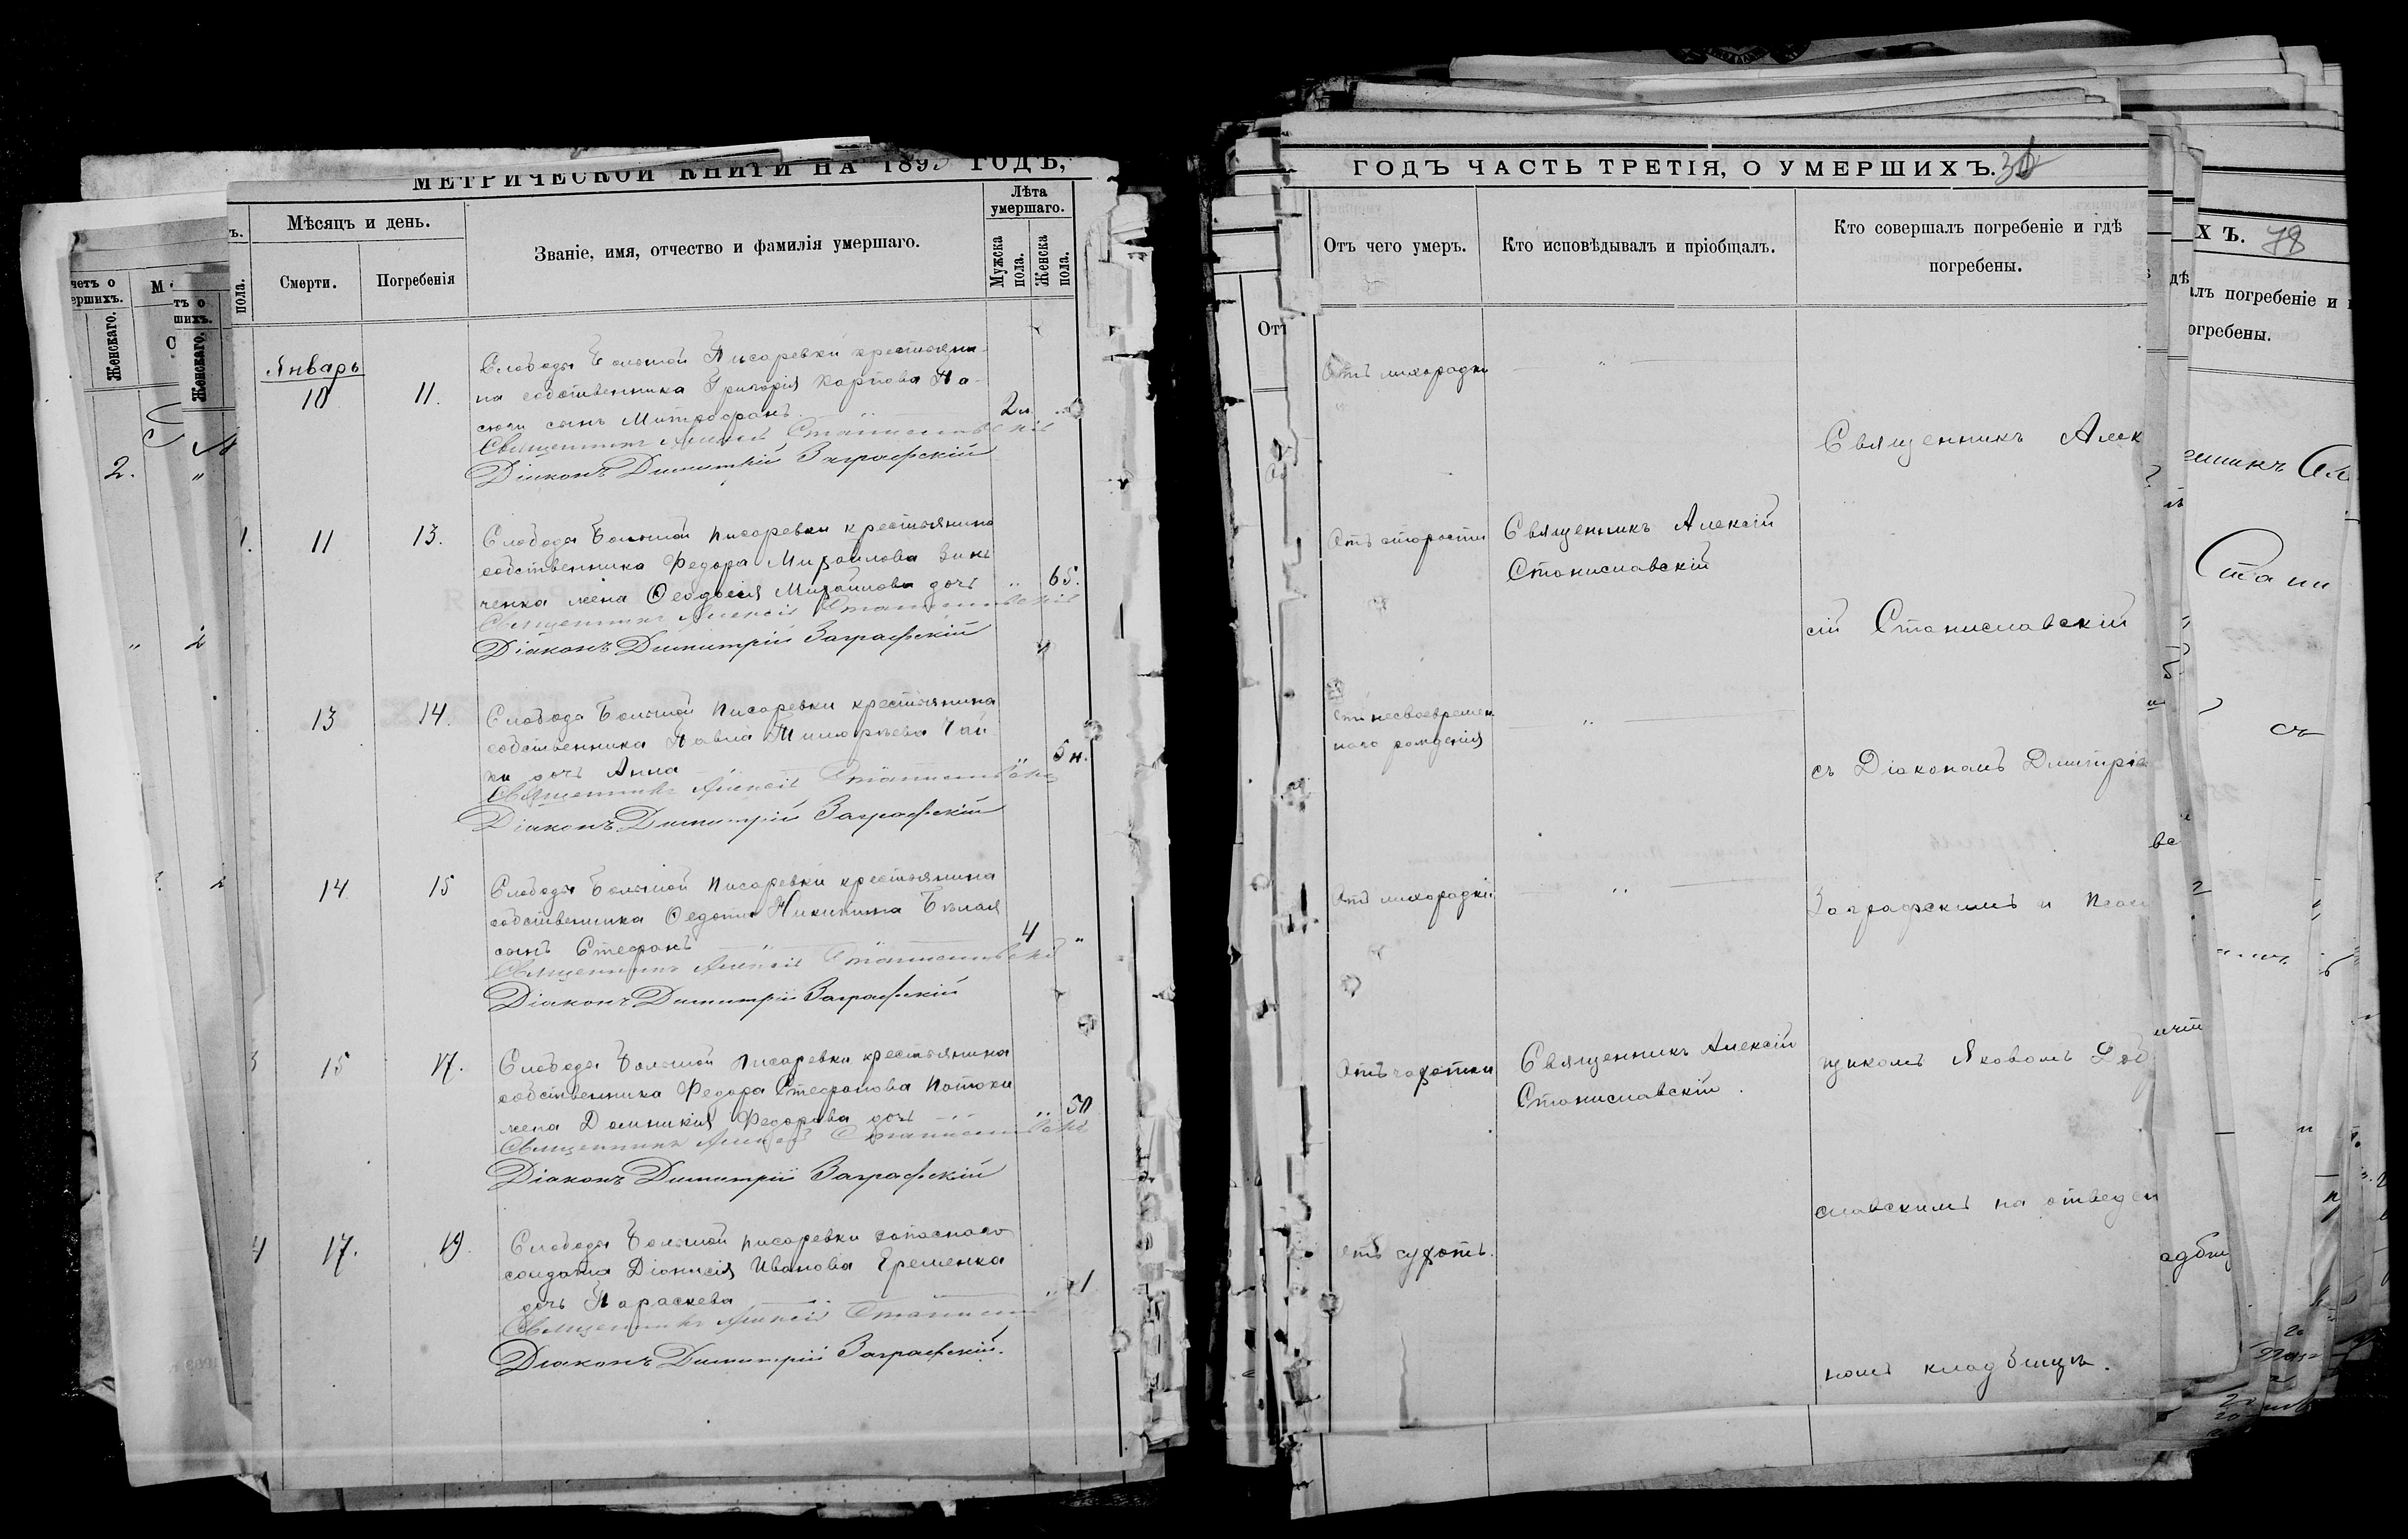 МЕТРИЧЕСКОЙ КНИГИ НА 189 ГОДЪ,
Мѣсяцъ и день.
Смерти.
Погребенія
Званіе, имя, отчество и фамилія умершаго.
Лѣта умершаго.
Мужска пола.
Женска пола.
Январь
10 11.
Слободы Большой Писаревки крестьяни-
на собственника Григорія Карпова Па-
сюги сынъ Митрофанъ
2 н.
Священникъ Алексій Станиславскій
Діаконъ Димитрій Заграфскій
1. 11 13.
Слободы Большой Писаревки крестьянина
собственника Федора Михайлова Вини
ченка жена Феодосія Михайлова дочь
65.
Священникъ Алексій Станиславскій
Діаконъ Димитрій Заграфскій
13 14.
Слободы Большой Писаревки крестьянина
собственника Павла Тимофѣева Чай
ки дочь Анна
5 н.
Священникъ Алексій Станиславскій
Діаконъ Димитрій Заграфскій
14 15
Слободы Большой Писаревки крестьянина
собственника Федота Никитина Бѣлая
сынъ Стефанъ
4 "
Священникъ Алексій Станиславскій
Діаконъ Димитрій Заграфскій
3 15 17.
Слободы Большой Писаревки крестьянина
собственника Федора Стефанова Потоки
жена Домникія Федорова дочь
50
Священникъ Алексій Станиславскій
Діаконъ Димитрій Заграфскій
4 17. 19.
Слободы Большой Писаревки запаснаго
солдата Діонисія Иванова Еременка
дочь Параскева
1
Священникъ Алексій Станислав
Діаконъ Димитрій Заграфскій.
ГОДЪ ЧАСТЬ ТРЕТІЯ, О УМЕРШИХЪ.
Отъ чего умеръ.
Кто исповѣдывалъ и пріобщалъ.
Кто совершалъ погребеніе и гдѣ
погребены.
Отъ лихорадки
Отъ старости
Священникъ Алексій
Станиславскій
Отъ несвоевремен
наго рожденія
Отъ лихорадки
Отъ чахотки
Священникъ Алексій
Станиславскій.
Отъ сухотъ.
Священникъ Алек
сій Станиславскій
съ Діакономъ Димитріе
Заграфскимъ и Псал
щикомъ Яковомъ Доб
славскимъ на отведен
номъ кладбищѣ.
ХЪ. 78
алъ погребеніе и
огребены.